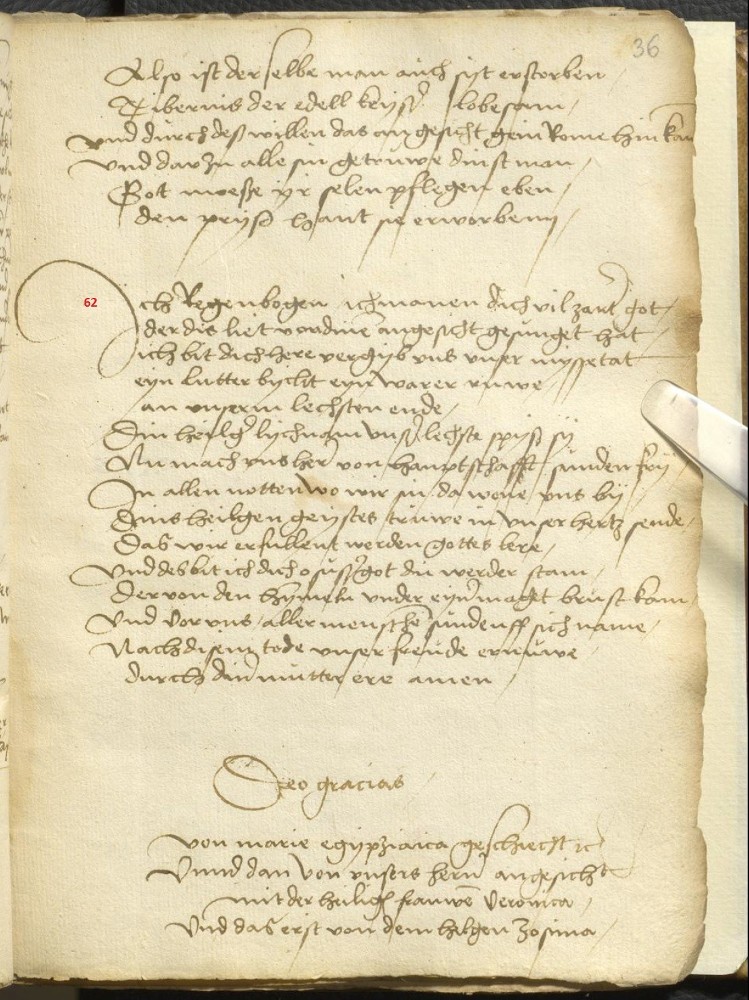 36
Also ist der selbe man auch sijt erstorben /
Tibernis der edell keyser lobesam /
vnd durch deß willen das angesicht gein Rome hin kam
vnd dar zu alle sin getruwe dinst man /
Got moeße yr selen pflegen eben /
den prijß hant sie erworbenn /
62
Ich Regenbogen ich manen dich vil zart got /
der dis liet von dinem angesicht gesunget hat
ich bit dich here vergyb vns vnser myssetat
eyn lutter bycht eyn warer ruwe
an vnserm lechsten ende /
Din heilger lychnam vnser lechste spijß sy
Nu mach vns her von hauptschafft sunden frij /
In allen notten wo wir sin da wone vns bij
Dins heilgen geystes truwe in vnser hertz sende /
Das wir erfullent werden gottes lere /
Vnd des bit ich dich o susser got du werder stam /
Der von den hymeln vnder eyn maget brust kam /
Vnd vor vns aller mensche sunden vff sich name /
Nach disem tode vnser freude ernuwe
durch diner mutter ere amen /
Deo gracias
von marie egypziaica geschiecht
Vnnd dan von vnsers hern angesicht
mit der heiligen frauwen Veronica /
Vnd das erst von dem heilgen zosima /